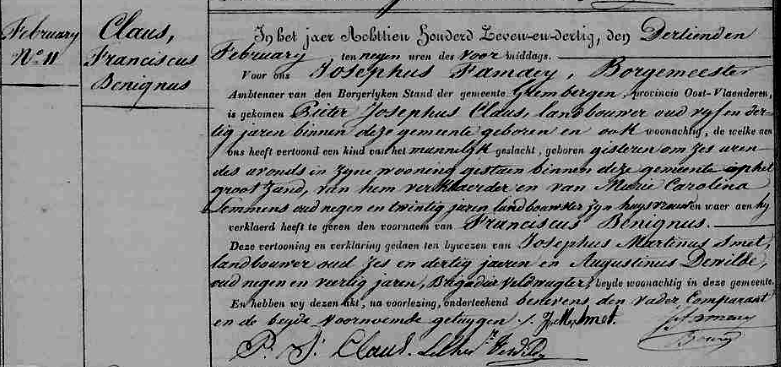 February
N° 11
Claus,
Franciscus
Benignus
In het jaer Achttien Honderd Zeven-en-dertig, den Dertienden
February ten negen uren des voor middags.
Voor ons Josephus Famaey, Borgemeester
Ambtenaer van den Borgerlyken Stand der gemeente Grembergen, provincie Oost-Vlaenderen,
is gekomen Pieter Josephus Claus, landbouwer oud vyf en der-
tig jaren binnen deze gemeente geboren en ook woonachtig, de welke aen
ons heeft vertoond een kind van het mannelyk geslacht, geboren gisteren om zes uren
des avonds in zyne wooning gestaen binnen deze gemeente op het
groot Zand, van hem verklaerder en van Marie Carolina
Temmens oud negen en twintig jaren landbouwster zyn huysvrouw en waer aen hy
verklaerd heeft te geven den voornaem van Franciscus Benignus.
Deze vertooning en verklaring gedaen ten bywezen van Josephus Martinus Smet,
landbouwer oud zes en dertig jaeren en Augustinus Dewilde,
oud negen en veertig jaren, Brigadier veldwagter, beyde woonachtig in deze gemeente.
En hebben wy dezen akt, na voorlezing, onderteekend benevens den vader Comparant
en de beyde voornoemde getuygen ./. Smet.
P. J. Claus.